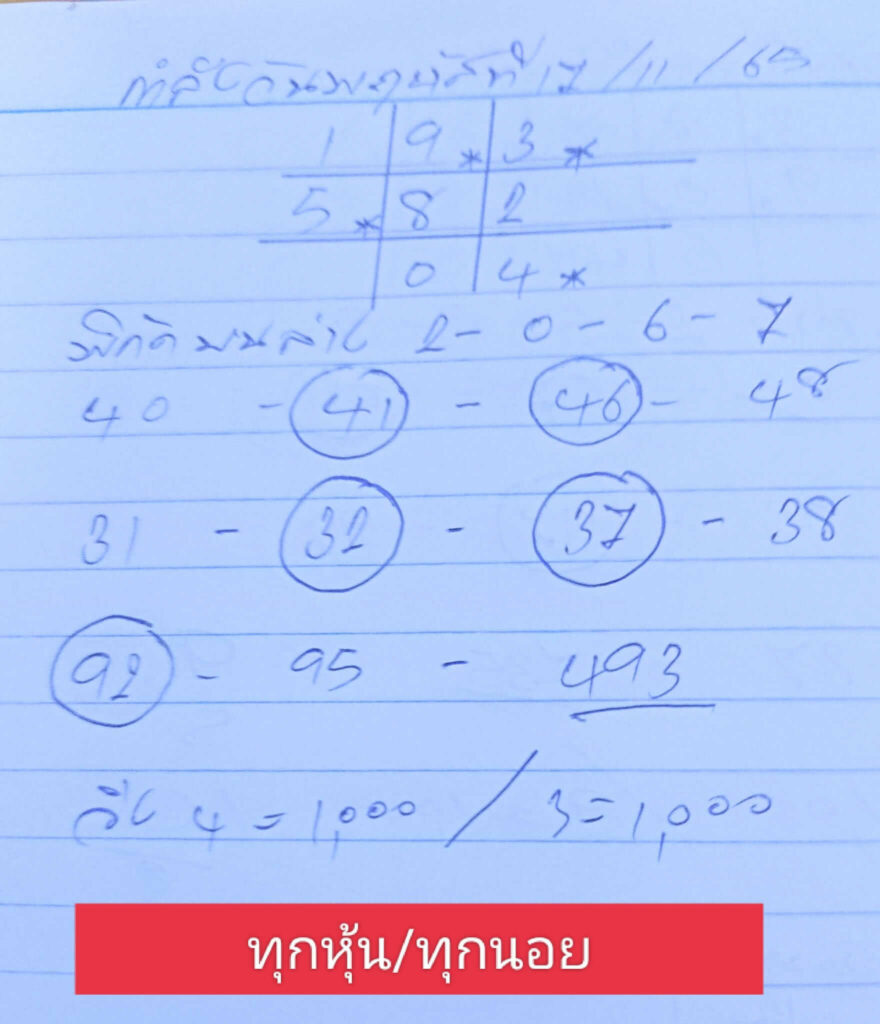 กำลังวันพฤหัสที่ 17/11/65
1 9* 3*
5* 8 2
0 4*
พิกัดบนล่าง 2-0-6-7
40 - 41 - 46 - 48
31 - 32 - 37 - 38
92 - 95 - 493
วิ่ง 4 = 1,000 / 3 = 1,000
ทุกหุ้น/ทุกนอย